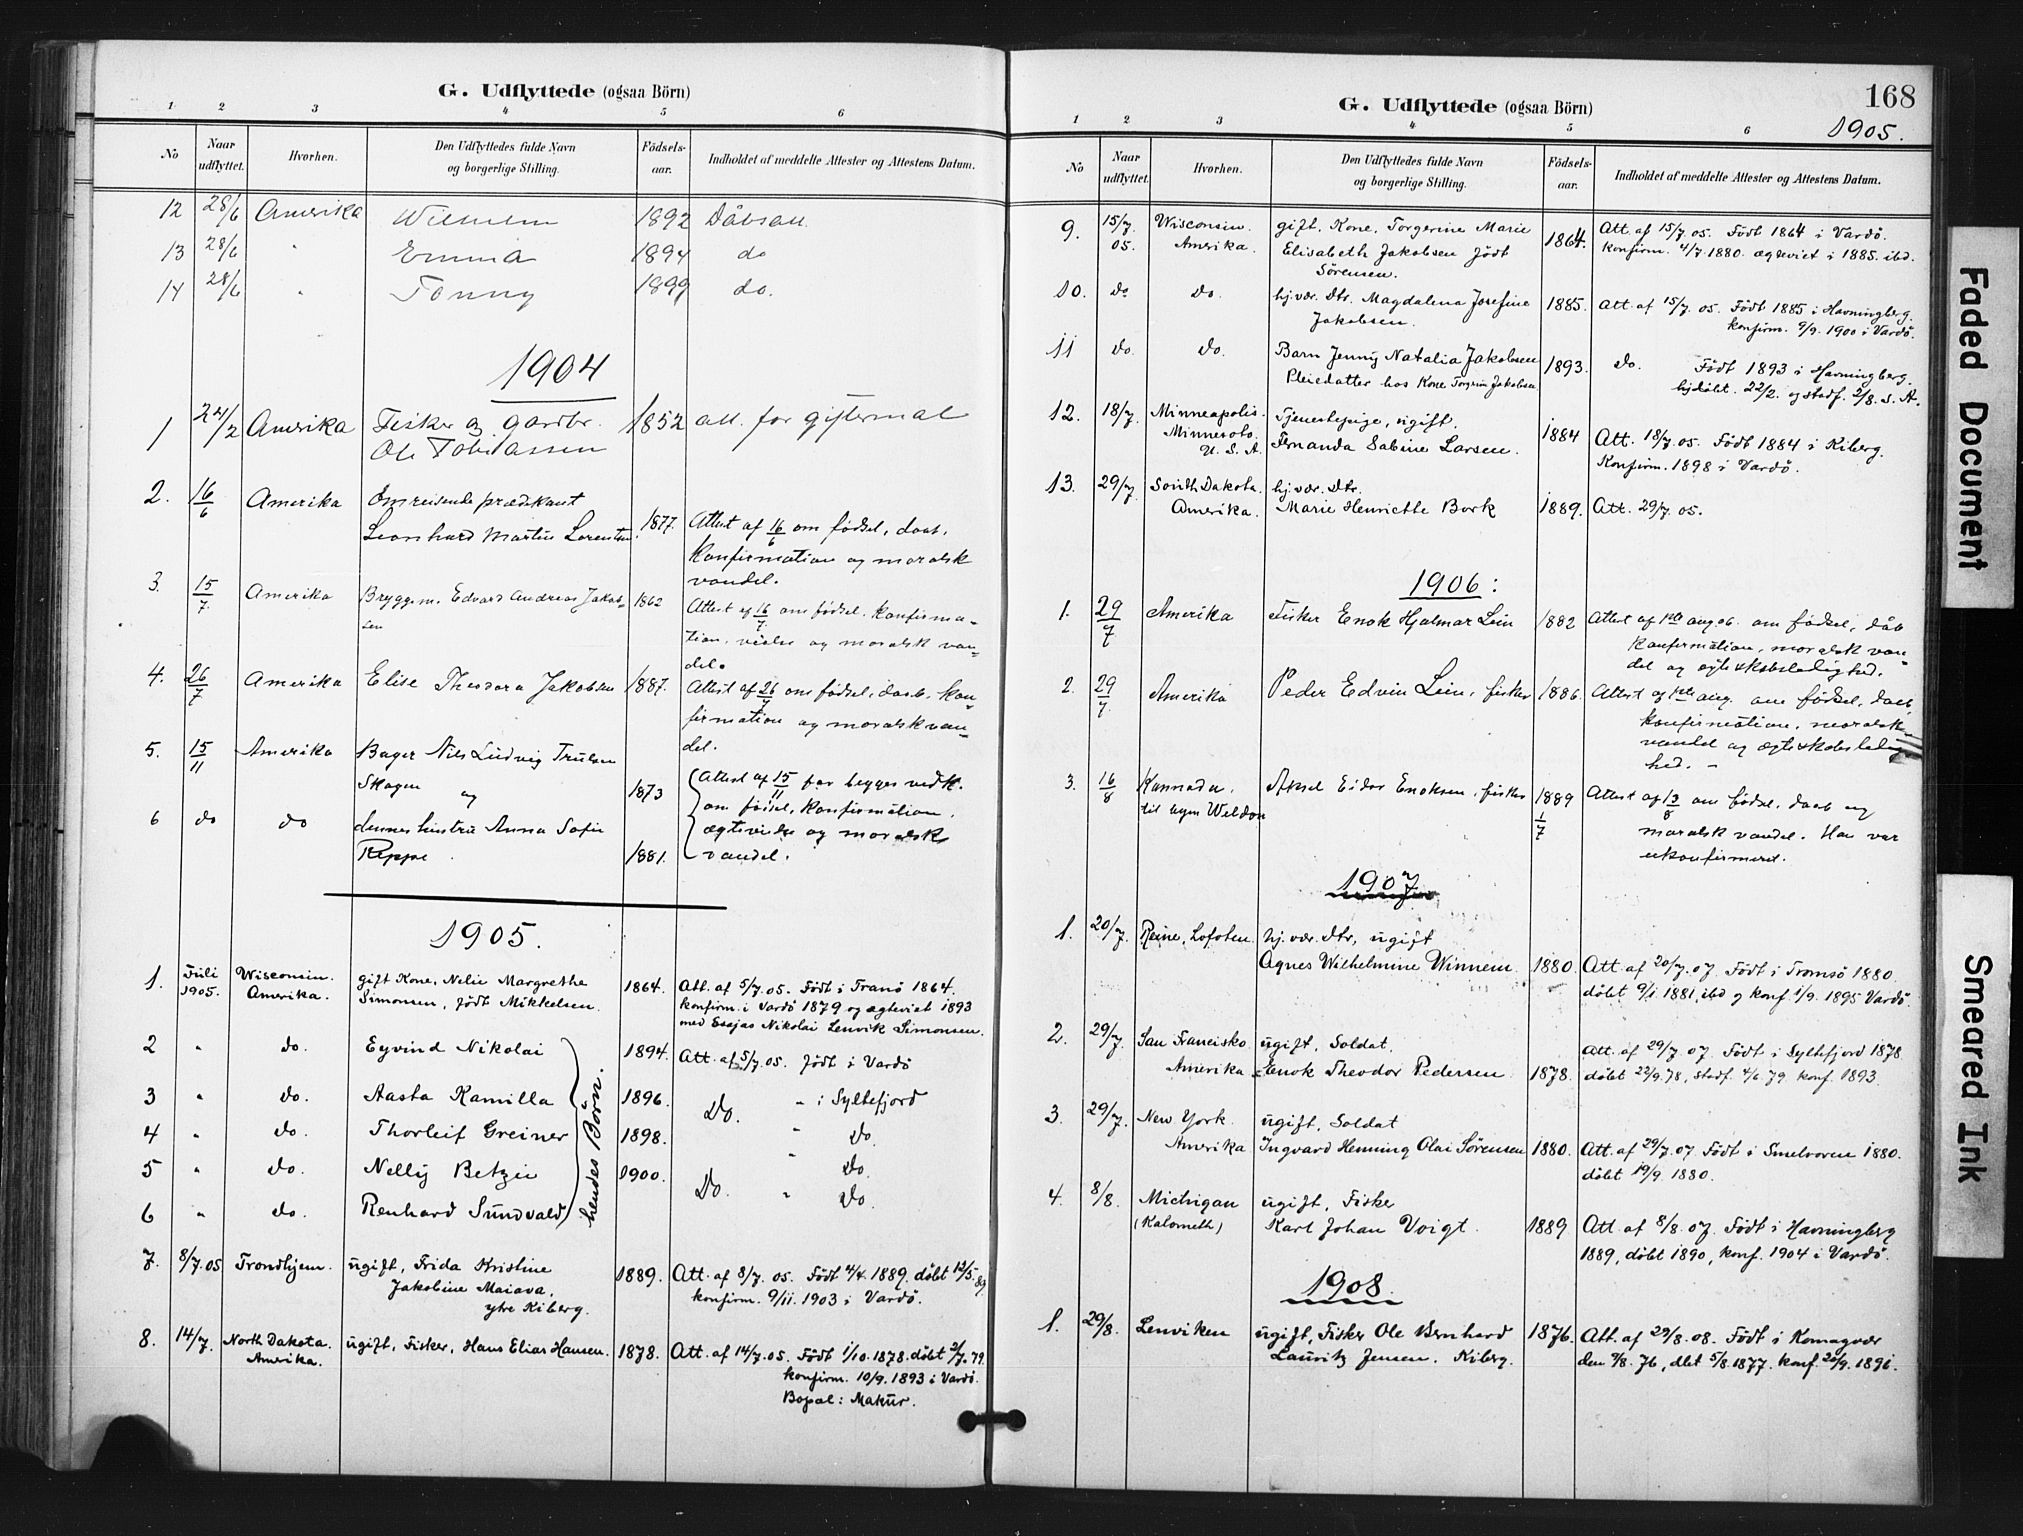 G. Udflyttede (ogsaa Börn)
1 2 3 4 5 6
No Naar udflyttet. Hvorhen. Den Udflyttedes fulde Navn og borgerlige Stilling. Födsels-aar. Indholdet af meddelte Attester og Attestens Datum.
12 28/6 Amerika 1892 Dåbsatt.
13 28/6 " Emma 1894 do
14 28/6 " 1899 do.
1904
1 24/2 Amerika Fisker og gardbr. 1852 att. for giftermål
Ole Tobiassen
2. 16/6 Amerika Omreisende prædikant
Leonhard Martin Lorentsen. 1877. Attest af 16/6 om fødsel, daab,
konfirmation og moralsk
vandel.
3. 15/7. Amerika Bryggem. Edvard Andreas Jakob- 1862
sen Attest af 16/7. om fødsel, konfirma-
tion, vielse og moralsk van-
del.
4. 26/7 Amerika Elise Theodora Jakobsen 1887. Attest af 26/7 om fødsel, daab, kon-
firmation og moralsk van-
del.
5. 15/11 Amerika Bager Nils Ludvig Trulsen
Skogen og 1873 Attest af 15/11 for begges vedk.
om fødsel, konfirmation,
6 do do dennes hustru Anna Sofie ægtevielse og moralsk
Reppe. 1881. vandel.
1905.
1. Juli 1905. Wisconsin. Amerika. gift Kone, Nelie Margrethe
Simonsen, født Mikkelsen. 1864. Att. af 5/7. 05. Født i Tranö 1864.
konfirm. i Vardö 1879 og ægteviet 1893
med Esajas Nikolai Lenvik Simonsen.
2 " do. Eyvind Nikolai 1894. Att. af 5/7. 05. født i Vardö
3 " do. Aasta Kamilla 1896. Do. " i Syltefjord
4 " do. Thorleif Greiner 1898. " do.
5 " do. Nelly Betzie 1900. Do. " Do.
6 " do. Renhard Sundvald " Do.
hendes Börn.
7. 8/7. 05 Trondhjem. ugift, Frida Kristine
Jakobine Maiava. 1889. Att. af 8/7. 05. Født 4/4. 1889. døbt 12/5. 89.
ytre Kiberg. konfirm. 9/11. 1903 i Vardö.
8. 14/7. North Dakota. Amerika. ugift, Fisker, Hans Elias Hansen. 1878. Att. af 14/7. 05. Född 1/10. 1878. døbt 2/7. 79.
konfirm. 10/9. 1893 i Vardö.
Bopæl: Makur.
168
G. Udflyttede (ogsaa Börn)
1905.
1 2 3 4 5 6
No Naar udflyttet. Hvorhen. Den Udflyttedes fulde Navn og borgerlige Stilling. Födsels-aar. Indholdet af meddelte Attester og Attestens Datum.
9. 15/7. 05. Wisconsin. Amerika. gift. Kone. Torgerine Marie
Elisabeth Jakobsen født
Sörensen. 1864. Att. af 15/7. 05. Född 1864 i Vardö.
konfirm. 4/7. 1880. ægteviet i 1885. ibd.
10. do do. hj.vær. Dtr. Magdalena Josefine
Jakobsen. 1885. Att. af 15/7. 05. Född 1885 i Havningberg.
konfirm. 9/9. 1900 i Vardö.
11 do. do. Barn Jenny Natalia Jakobsen
Pleiedatter hos Kone Torgrin Jakobsen 1893. do. Född 1893 i Havningberg.
hjdöbt. 22/2. og stadf. 2/8. s. A.
12. 18/7. Minneapolis. Tjenestepige, ugift.
Minnesota. U. S. A. Fernanda Sabine Larsen. 1884 Att. 18/7. 05. Född 1884 i Kiberg.
Konfirm. 1898 i Vardö.
13. 29/7. South Dakota. hj.vær. Dtr.
Amerika. Marie Henriette Bork 1889. Att. 29/7. 05.
1906:
1. 29/7 Amerika Fisker Enok Hjalmar Lein 1882 Attest af 1ste aug 06. om fødsel, dåb
konfirmation, moralsk van-
del og ægteskabsledighed.
2. 29/7 Amerika Peder Edvin Lein, fisker 1886. Attest af 1ste aug. om fødsel, daab,
konfirmation, moralsk
vandel og ægteskabsledig
hed. -
3. 16/8 Kannada, Aksel Eidar Enoksen, fisker 1889 1/7 Attest af 13/8 om fødsel, daab og
til byen Weldon moralsk vandel. Han var
ukonfirmeret.
1907
1. 20/7. Reine, Lofoten. hj. vær. Dtr, ugift
Agnes Wilhelmine Winnem. 1880. Att. af 20/7. 07. Född i Tromsö 1880.
døbt 9/1. 1881, ibd og konf. 1/9. 1895 Vardö.
2. 29/7. San Francisko ugift. Soldat.
Amerika Enok Theodor Pedersen 1878. Att. af 29/7. 07. Född i Syltefjord 1878
døbt 22/9. 78, stadf. 4/6. 79. konf. 1893.
3. 29/7. New York. ugift. Soldat
Amerika Ingvard Henning Olai Sørensen 1880. Att. af 29/7. 07. Född i Smelroren 1880.
døbt 19/9. 1880.
4. 8/8. Michigan ugift, Fisker
(Kalometh) Karl Johan Voigt. 1889. Att. af 8/8. 07. Född i Havningberg
1889, døbt 1890, konf. 1904 i Vardö.
1908.
1. 29/8. Lenviken ugift, Fisker Ole Bernhard 1876. Att. af 29/8. 08. Född i Komagvær
Lauritz Jensen. Kiberg. den 9/8. 76, dbt 5/8. 1877. konf. 20/9. 1891.
Faded Document
Smeared Ink